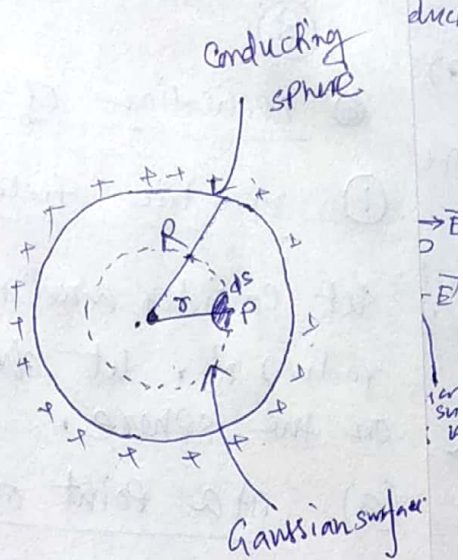 Conducting
sphere
+ + + + + +
R
ds
r
P
+ + + + + + + + + + +
Gaussian surface
duc
→E
E